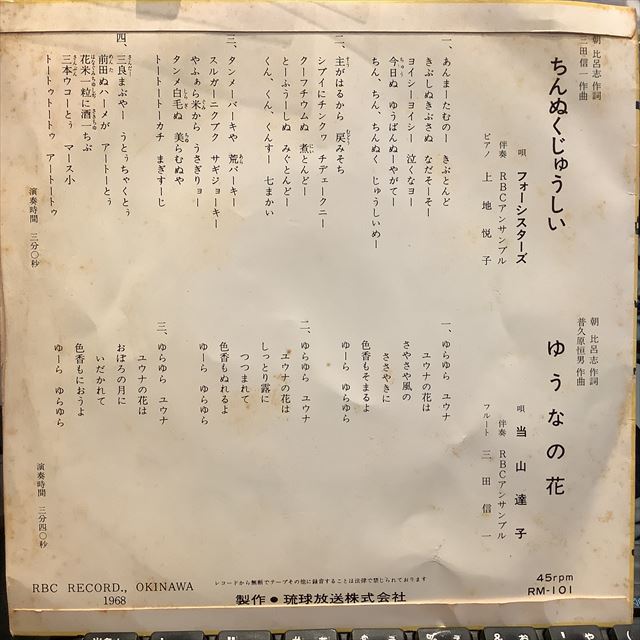 朝 比呂志 作詞
三田信一 作曲
ちんぬくじゅうしい
唄 フォーシスターズ
伴奏 RBCアンサンブル
ピアノ 上地悦子
一、あんまーたむのー きぶとんど
きぶしぬきぶさぬ なだそーそー
ヨイシーヨイシー 泣くなヨー
今日ぬ ゆうばんぬーやがてー
ちん、ちん、ちんぬく じゅうしいめー
二、主がはるから 戻みそち
シブイにチンクヮ チデークニー
クーフチウムぬ 煮とんどー
とーふうーしぬ みぐとんどー
くん、くん、くんすー 七まかい
三、タンメーバーキや 荒バーキー
スルガーニクブク サギジョーキー
やふぁら米から うさぎりョー
タンメ白毛ぬ 美らむぬや
トートートーカチ まぎすーじ
四、三良まぶやー うとぅちゃくとぅ
前田ぬハーメが アートーとぅ
花米一粒に酒一ちぶ
三本ウコーとぅ マース小
トートゥトートゥ アートートゥ
演奏時間 三分〇秒
朝 比呂志 作詞
普久原恒男 作曲
ゆうなの花
唄 当山達子
伴奏 RBCアンサンブル
フルート 三田信一
一、ゆらゆら ユウナ
ユウナの花は
さやさや風の
ささやきに
色香もそまるよ
ゆーら ゆらゆら
二、ゆらゆら ユウナ
ユウナの花は
しっとり露に
つつまれて
色香もぬれるよ
ゆーら ゆらゆら
三、ゆらゆら ユウナ
ユウナの花は
おぼろの月に
いだかれて
色香もにおうよ
ゆーら ゆらゆら
演奏時間 三分四〇秒
45rpm
RM-101
レコードから無断でテープその他に録音することは法律で禁じられております
製作●琉球放送株式会社
RBC RECORD., OKINAWA
1968